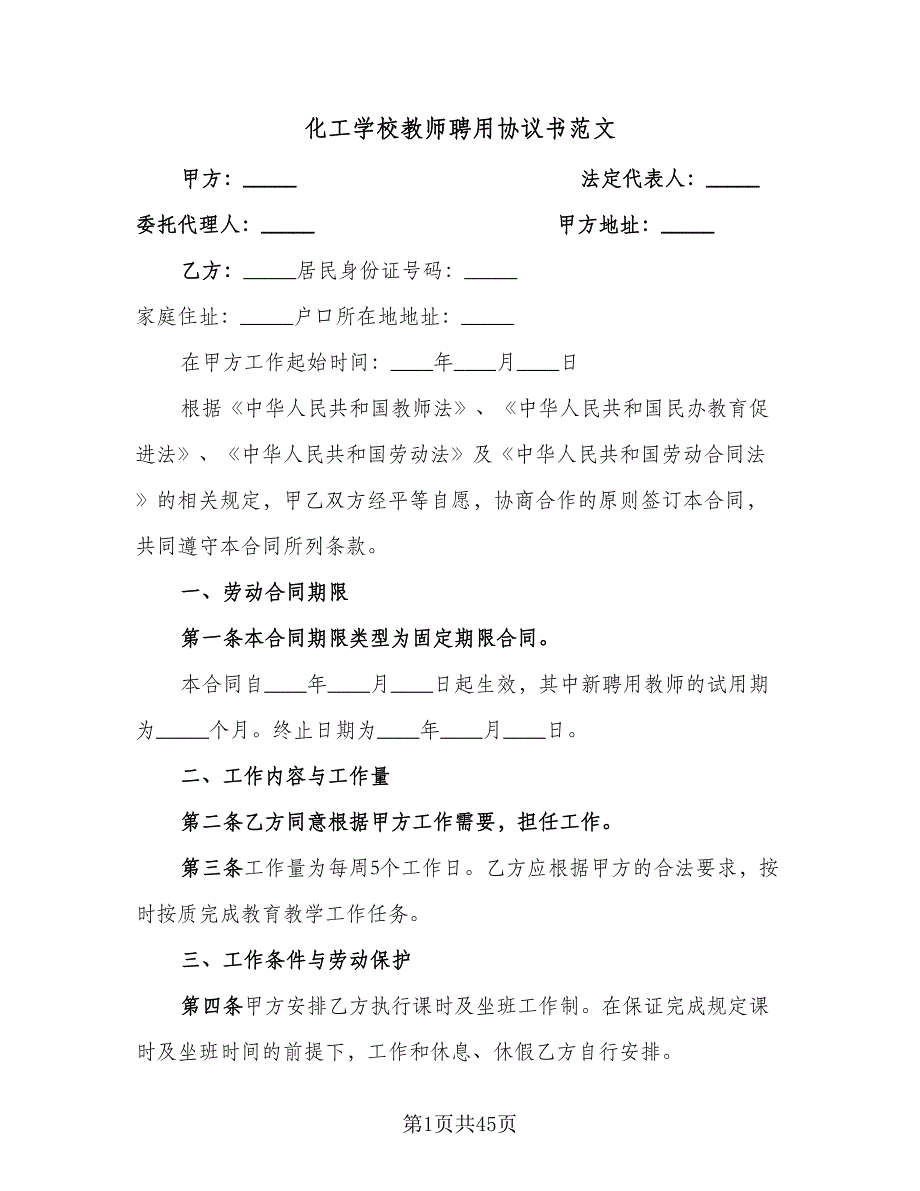 化工学校教师聘用协议书范文
甲方：_____ 法定代表人：_____
委托代理人：_____ 甲方地址：_____
乙方：_____居民身份证号码：_____
家庭住址：_____户口所在地地址：_____
在甲方工作起始时间：____年____月____日
根据《中华人民共和国教师法》、《中华人民共和国民办教育促
进法》、《中华人民共和国劳动法》及《中华人民共和国劳动合同法
》的相关规定，甲乙双方经平等自愿，协商合作的原则签订本合同，
共同遵守本合同所列条款。
一、劳动合同期限
第一条本合同期限类型为固定期限合同。
本合同自____年____月____日起生效，其中新聘用教师的试用期
为_____个月。终止日期为____年____月____日。
二、工作内容与工作量
第二条乙方同意根据甲方工作需要，担任工作。
第三条工作量为每周5个工作日。乙方应根据甲方的合法要求，按
时按质完成教育教学工作任务。
三、工作条件与劳动保护
第四条甲方安排乙方执行课时及坐班工作制。在保证完成规定课
时及坐班时间的前提下，工作和休息、休假乙方自行安排。
第1页共45页